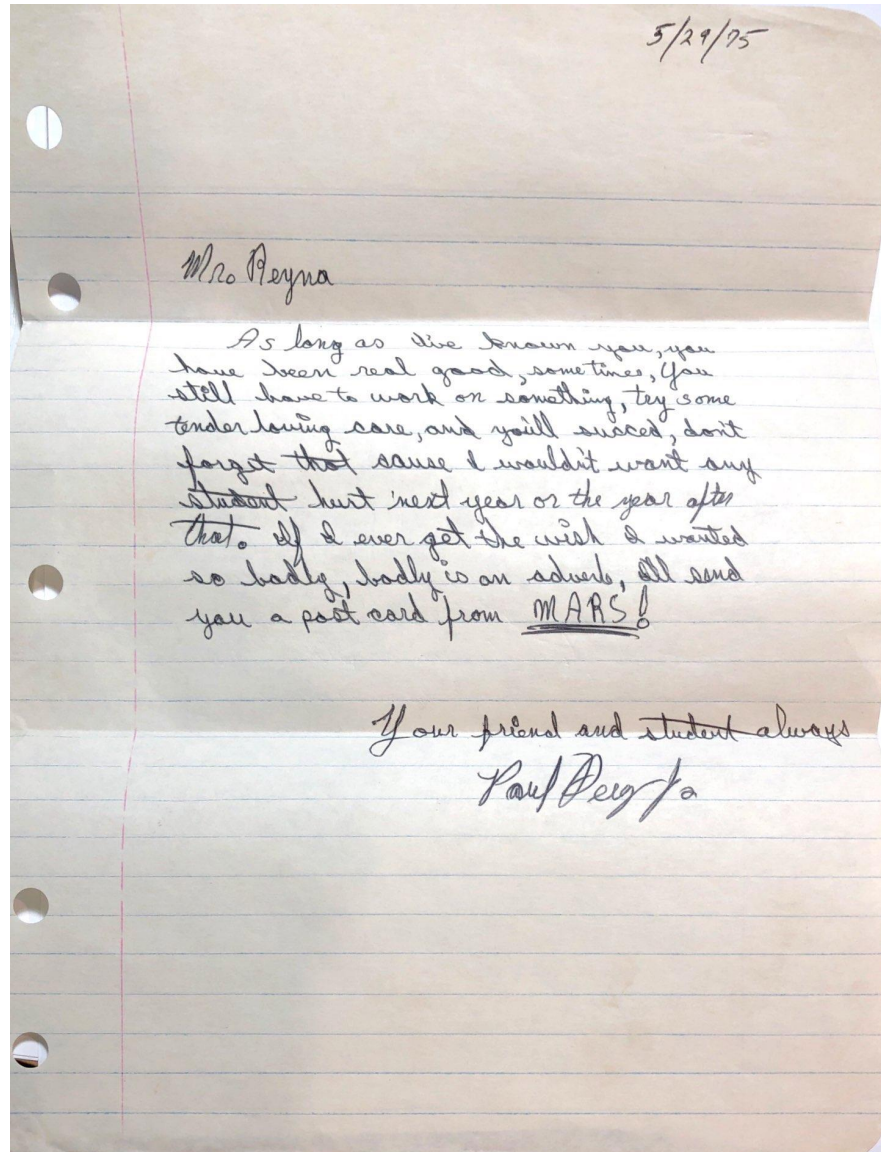 5/29/75
Mr. Reyna
As long as I've known you, you
have been real good, sometimes, You
still have to work on something, try some
tender loving care, and you'll succed, don't
forget that cause I wouldn't want any
student hurt next year or the year after
that. If I ever get the wish I wanted
so badly, badly is an adverb, I'll send
you a post card from MARS!
Your friend and student always
Paul